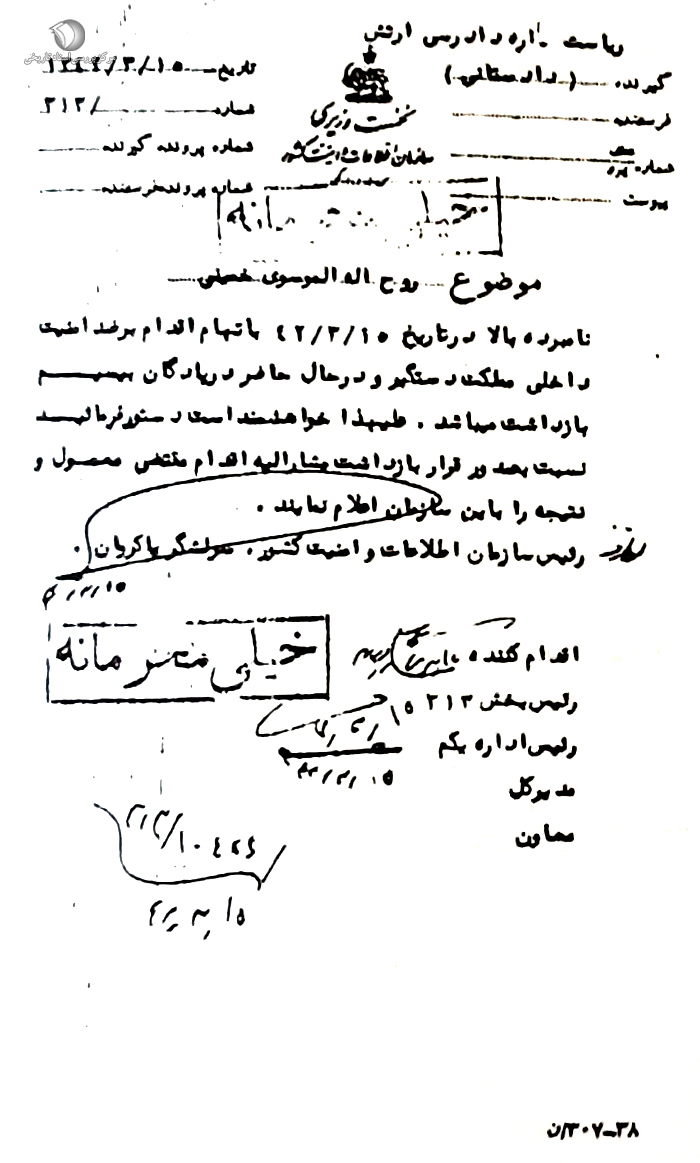 مرکز بررسی اسناد تاریخی
ریاست اداره دادرسی ارتش
گیرنده (دادستانی)
تاریخ ۱۳۴۲/۳/۱۵
فرستنده
شماره /۳۱۲
نخست وزیری
شماره پرونده گیرنده
سازمان اطلاعات و امنیت کشور
شماره
شماره پرونده فرستنده
پیوست
خیلی محرمانه
موضوع روح اله الموسوی خمینی
نامبرده بالا در تاریخ ۴۲/۳/۱۵ باتهام اقدام برضد امنیت
داخلی مملکت دستگیر و در حال حاضر در پادگان بیسیم
بازداشت میباشد . علیهذا خواهشمند است دستور فرمائید
نسبت بصدور قرار بازداشت مشارالیه اقدام مقتضی معمول و
نتیجه را باین سازمان اعلام نمایند .
رئیس سازمان اطلاعات و امنیت کشور. سرلشگر پاکروان .
خیلی محرمانه
اقدام کننده
رئیس بخش ۳۱۲
۱۵
رئیس اداره یکم
۴۲/۳/۱۵
مدیرکل
معاون
۱۵
۳۸-۳۰۷/ن